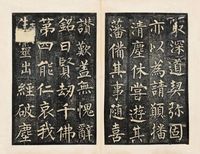 冣深道契弥固
亦以為請願播
清塵休嘗遊其
藩備其事隨喜
讚歎蓋無愧辭
銘曰賢劫千佛
第四能仁哀我
生靈出經破塵